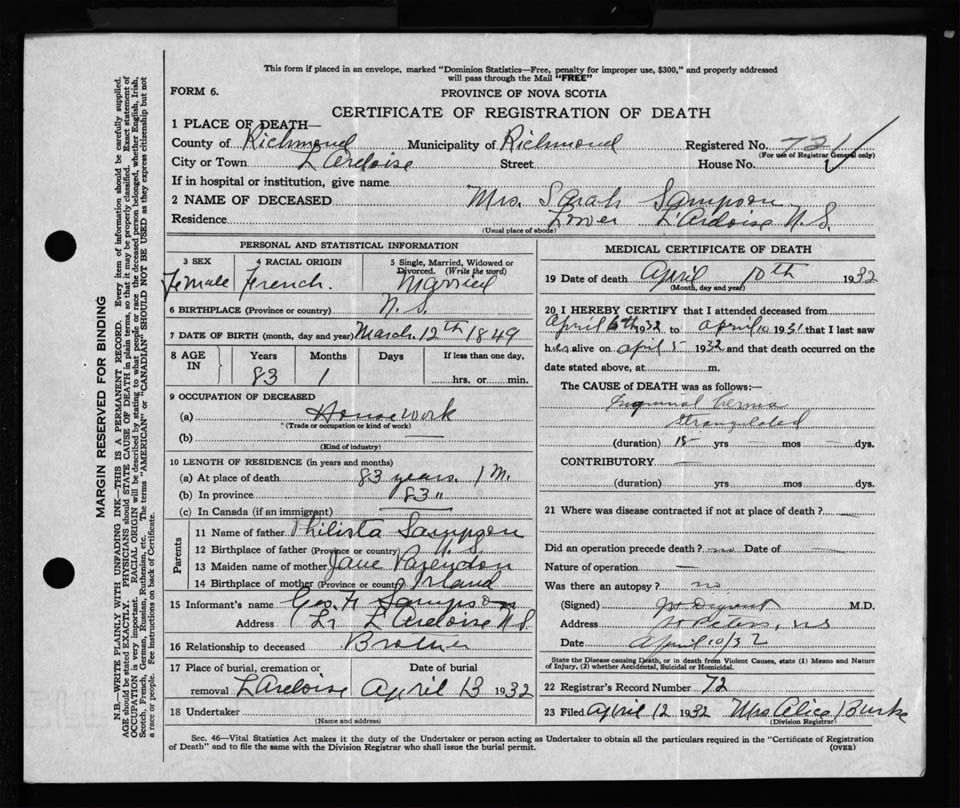 This form if placed in an envelope, marked "Dominion Statistics—Free, penalty for improper use, $300," and properly addressed
will pass through the Mail "FREE"
FORM 6.
PROVINCE OF NOVA SCOTIA
CERTIFICATE OF REGISTRATION OF DEATH
1 PLACE OF DEATH—
County of Richmond Municipality of Richmond Registered No. 721
(For use of Registrar General only)
City or Town L'Ardoise Street House No.
If in hospital or institution, give name
2 NAME OF DECEASED Mrs. Sarah Sampson
Residence Lower L'Ardoise N.S.
(Usual place of abode)
PERSONAL AND STATISTICAL INFORMATION
3 SEX 4 RACIAL ORIGIN 5 Single, Married, Widowed or Divorced. (Write the word)
Female French. Married
6 BIRTHPLACE (Province or country) N.S.
7 DATE OF BIRTH (month, day and year) March 12th 1849
8 AGE IN Years Months Days If less than one day,
83 1 hrs. or min.
9 OCCUPATION OF DECEASED
(a) Housework
(Trade or occupation or kind of work)
(b) —
(Kind of industry)
10 LENGTH OF RESIDENCE (in years and months)
(a) At place of death 83 years. 1 M.
(b) In province 83 "
(c) In Canada (if an immigrant)
Parents
11 Name of father Philista Sampson
12 Birthplace of father (Province or country) N.S.
13 Maiden name of mother Jane
14 Birthplace of mother (Province or country) Irland
15 Informant's name Geo. Sampson
Address Lr L'Ardoise N.S.
16 Relationship to deceased Brother
17 Place of burial, cremation or Date of burial
removal L'Ardoise April 13 1932
18 Undertaker
(Name and address)
MEDICAL CERTIFICATE OF DEATH
19 Date of death April 10th 1932
(Month, day and year)
20 I HEREBY CERTIFY that I attended deceased from
April 6th 1932 to April 10 1931 that I last saw
her alive on April 5 1932 and that death occurred on the
date stated above, at m.
The CAUSE of DEATH was as follows:—
Inguinal hernia
strangulated
(duration) 15 yrs mos — dys.
CONTRIBUTORY —
(duration) yrs mos dys.
21 Where was disease contracted if not at place of death? —
Did an operation precede death? no Date of —
Nature of operation —
Was there an autopsy? no
(Signed) M.D.
Address St Peters, N.S
Date April 10/32
State the Disease causing Death, or in death from Violent Causes, state (1) Means and Nature
of Injury, (2) whether Accidental, Suicidal or Homicidal.
22 Registrar's Record Number 72
23 Filed April 12 1932 Mrs Alice Burke
(Division Registrar)
Sec. 46—Vital Statistics Act makes it the duty of the Undertaker or person acting as Undertaker to obtain all the particulars required in the "Certificate of Registration
of Death" and to file the same with the Division Registrar who shall issue the burial permit.
(OVER)
MARGIN RESERVED FOR BINDING
N.B.—WRITE PLAINLY WITH UNFADING INK—THIS IS A PERMANENT RECORD. Every item of information should be carefully supplied.
AGE should be stated EXACTLY. PHYSICIANS should STATE CAUSE OF DEATH in plain terms, so that it may be properly classified. Exact statement of
OCCUPATION is very important. RACIAL ORIGIN will be described by stating to what people or race the deceased person belonged, whether English, Irish,
Scotch, French, German, Russian, Ruthenian, etc. The terms "AMERICAN" or "CANADIAN" SHOULD NOT BE USED as they express citizenship but not
a race or people. See instructions on back of Certificate.